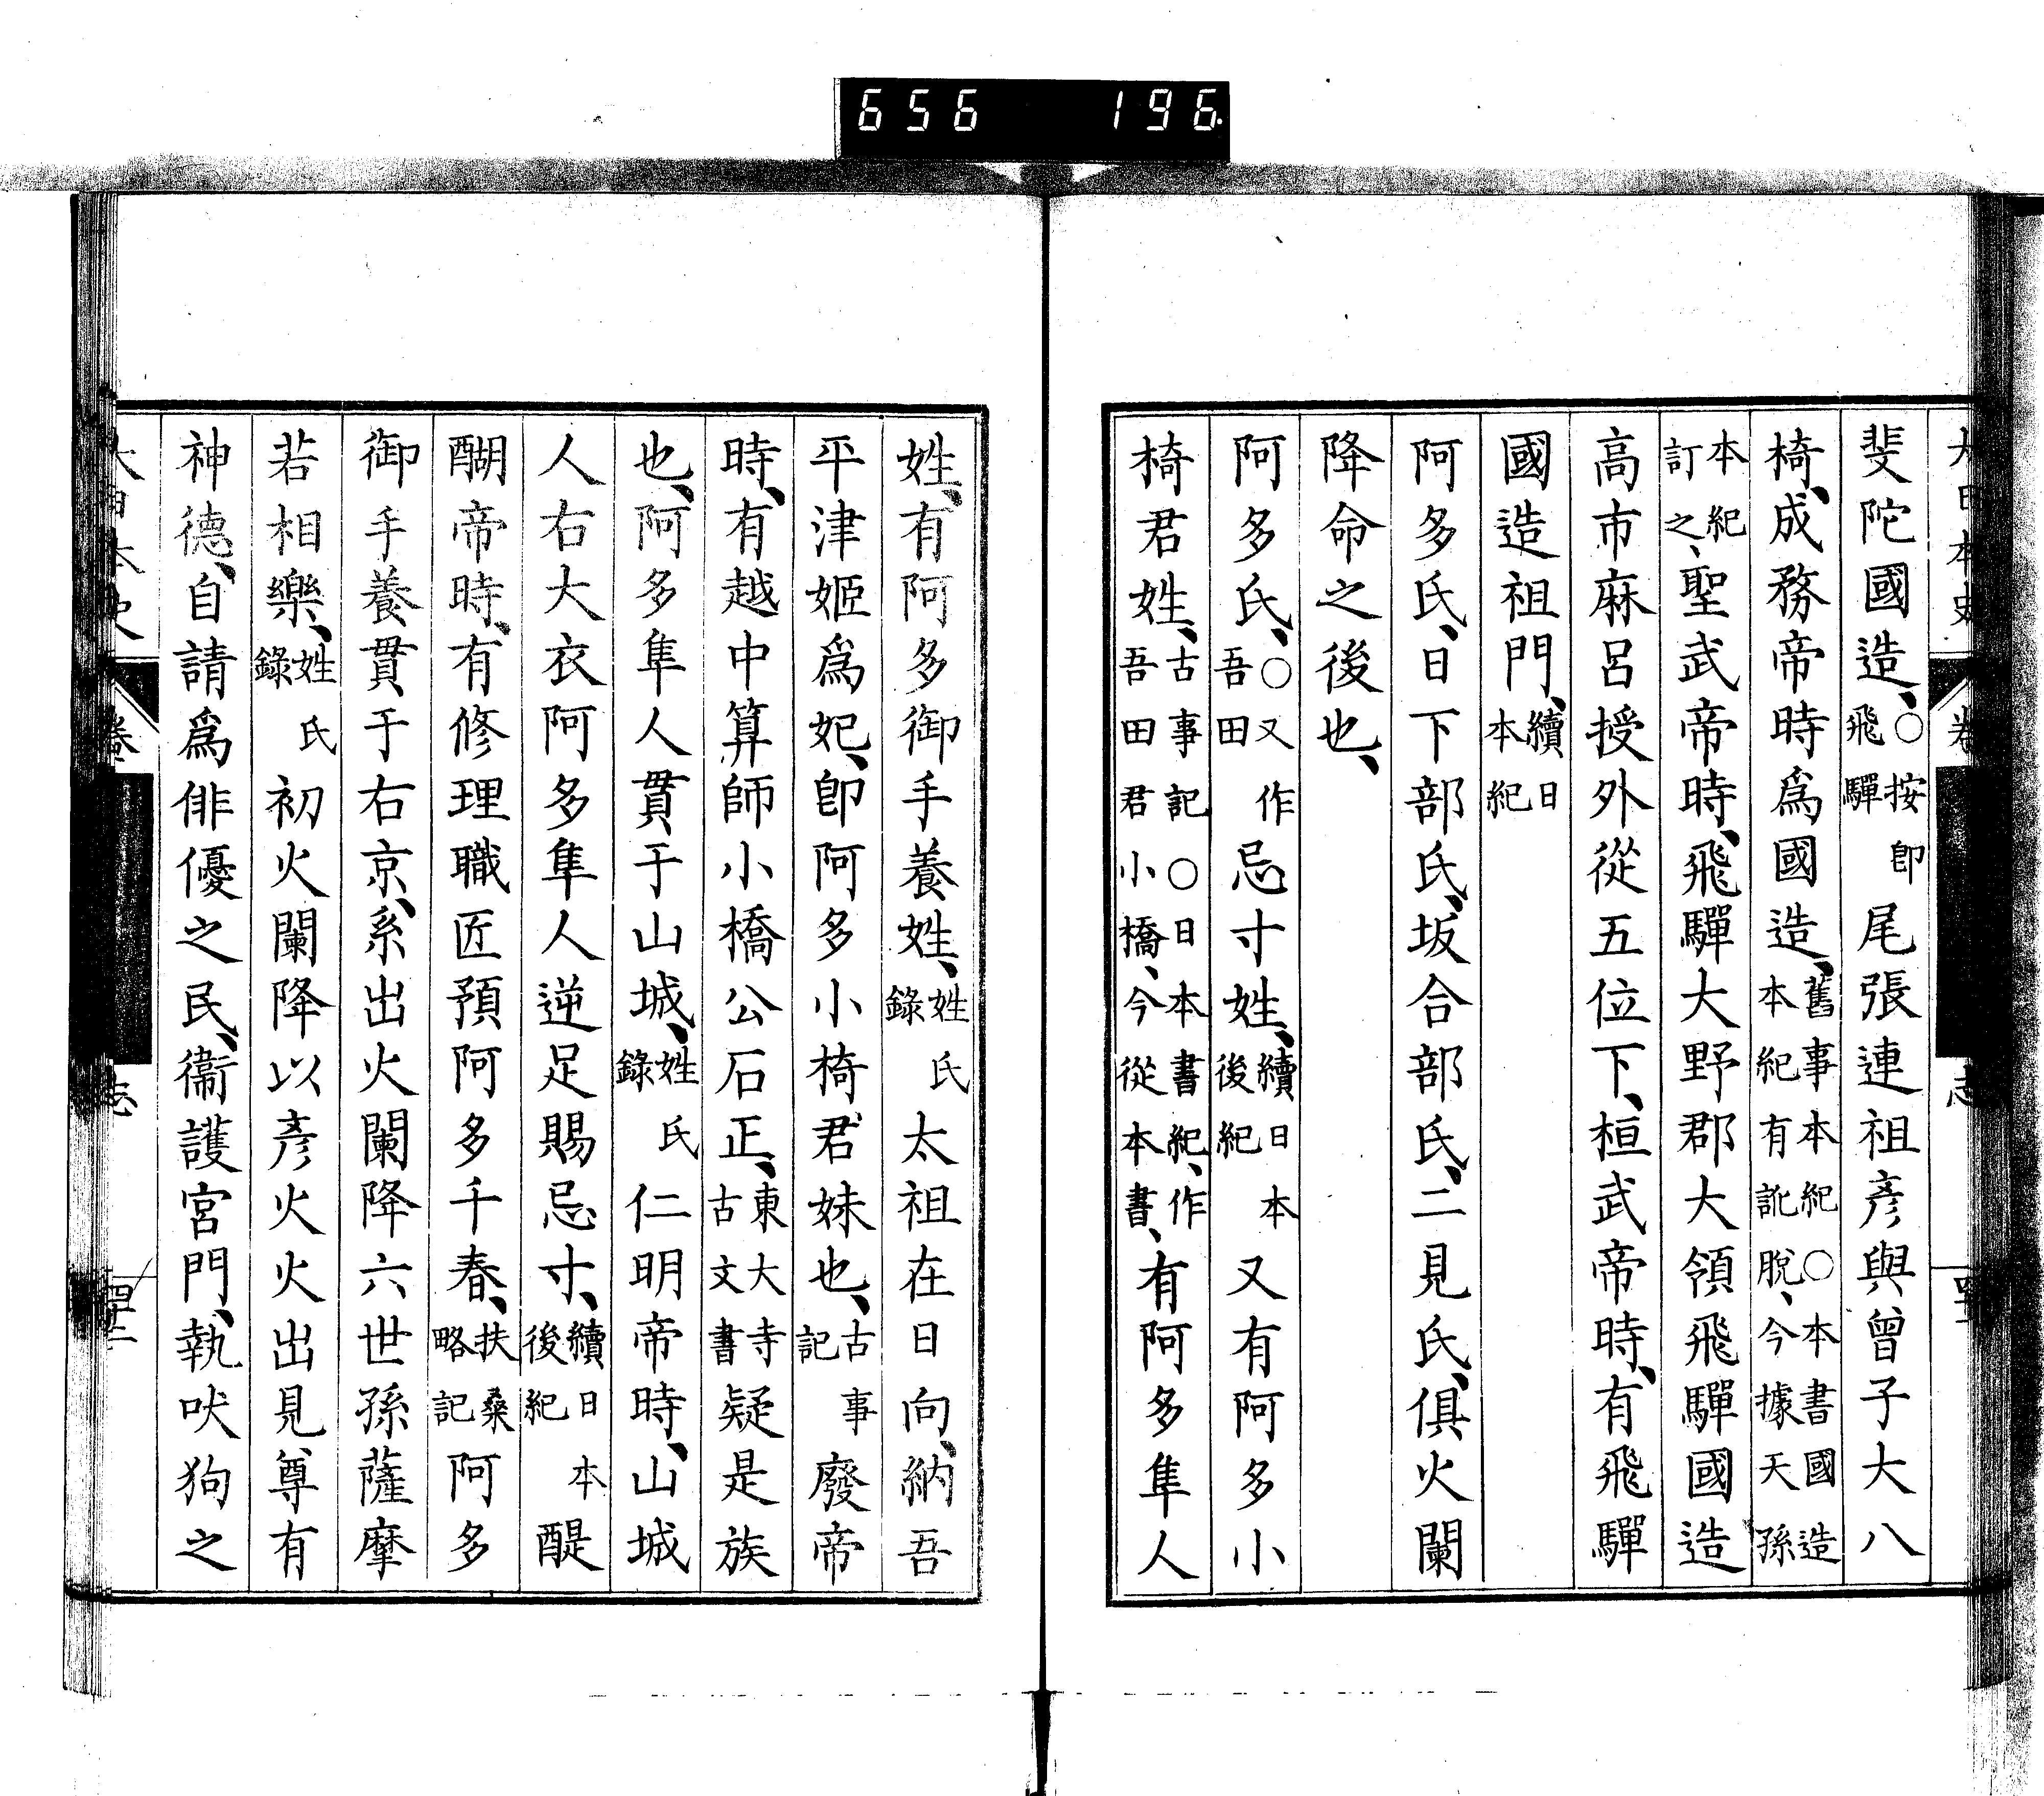 656 196
大日本史 卷 志
斐陀國造、○按卽飛驒尾張連祖彥與曾子大八
椅、成務帝時爲國造、舊事本紀○本書國造本紀有訛脫、今據天孫
本紀訂之、聖武帝時、飛驒大野郡大領飛驒國造
高市麻呂授外從五位下、桓武帝時、有飛驒
國造祖門、續日本紀
阿多氏、日下部氏、坂合部氏、二見氏、俱火闌
降命之後也、
阿多氏、○又作吾田忌寸姓、續日本後紀又有阿多小
椅君姓、古事記○日本書紀、作吾田君小橋、今從本書、有阿多隼人
姓、有阿多御手養姓、姓氏錄太祖在日向、納吾
平津姬爲妃、卽阿多小椅君妹也、古事記廢帝
時、有越中算師小橋公石正、東大寺古文書疑是族
也、阿多隼人貫于山城、姓氏錄仁明帝時、山城
人右大衣阿多隼人逆足賜忌寸、續日本後紀醍
醐帝時、有修理職匠預阿多千春、扶桑略記阿多
御手養貫于右京、系出火闌降六世孫薩摩
若相樂、姓氏錄初火闌降以彥火火出見尊有
神德、自請爲俳優之民、衞護宮門、執吠狗之
大日本史 卷 志